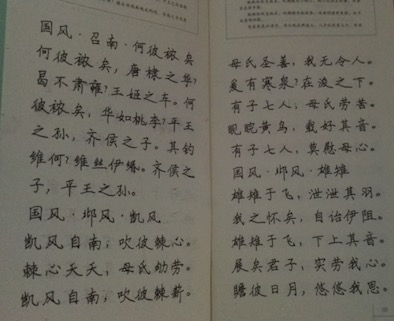 国风·召南·何彼秾矣
何彼秾矣，唐棣之华？
曷不肃雍？王姬之车。何
彼秾矣，华如桃李？平王
之孙，齐侯之子。其钓
维何？维丝伊缗。齐侯之
子，平王之孙。
国风·邶风·凯风
凯风自南，吹彼棘心。
棘心夭夭，母氏劬劳。
凯风自南，吹彼棘薪。
母氏圣善，我无令人。
爰有寒泉？在浚之下。
有子七人，母氏劳苦。
睍睆黄鸟，载好其音。
有子七人，莫慰母心。
国风·邶风·雄雉
雄雉于飞，泄泄其羽。
我之怀矣，自诒伊阻。
雄雉于飞，下上其音。
展矣君子，实劳我心。
瞻彼日月，悠悠我思。